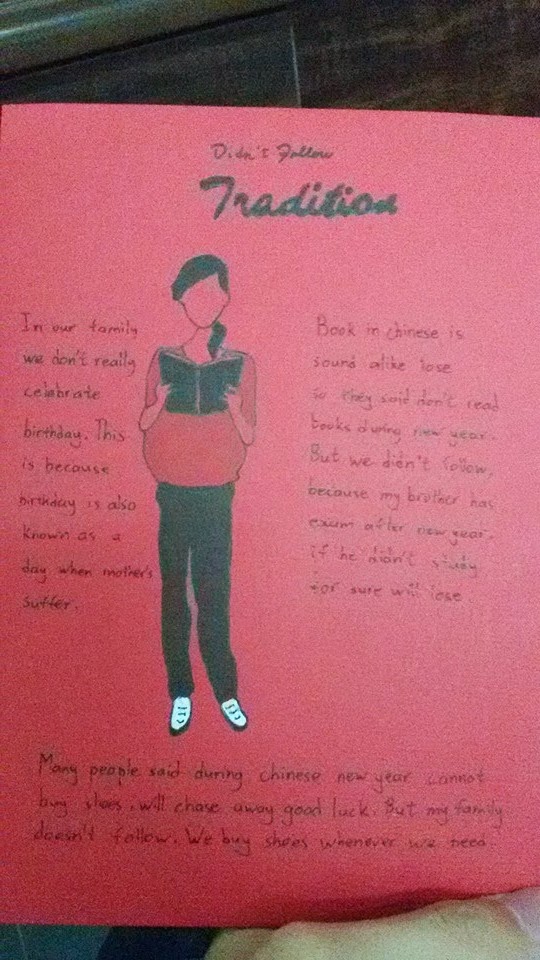 Didn't Follow
Tradition
In our family
we don't really
celebrate
birthday. This
is because
birthday is also
known as a
day when mother's
suffer.
Book in chinese is
sound alike lose
so they said don't read
books during new year.
But we didn't follow,
because my brother has
exam after new year.
if he didn't study
for sure will lose
Many people said during chinese new year cannot
buy shoes, will chase away good luck. But my family
doesn't follow. We buy shoes whenever we need.